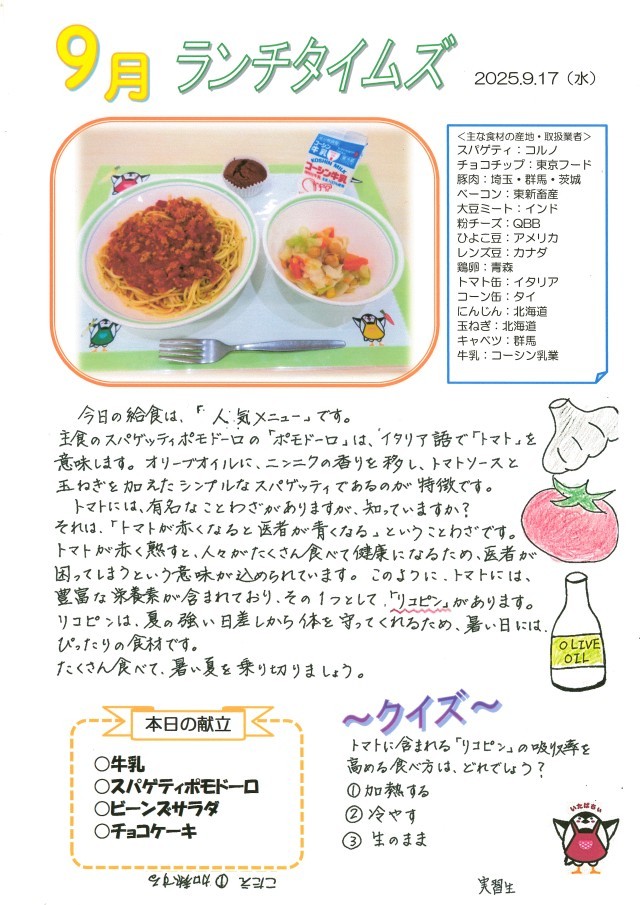 9月 ランチタイムズ 2025.9.17（水）
＜主な食材の産地・取扱業者＞
スパゲティ：コルノ
チョコチップ：東京フード
豚肉：埼玉・群馬・茨城
ベーコン：東新畜産
大豆ミート：インド
粉チーズ：QBB
ひよこ豆：アメリカ
レンズ豆：カナダ
鶏卵：青森
トマト缶：イタリア
コーン缶：タイ
にんじん：北海道
玉ねぎ：北海道
キャベツ：群馬
牛乳：コーシン乳業
コーシン牛乳
今日の給食は、「人気メニュー」です。
主食のスパゲッティポモドーロの「ポモドーロ」は、イタリア語で「トマト」を
意味します。オリーブオイルに、ニンニクの香りを移し、トマトソースと
玉ねぎを加えたシンプルなスパゲッティであるのが特徴です。
トマトには、有名なことわざがありますが、知っていますか？
それは、「トマトが赤くなると医者が青くなる」ということわざです。
トマトが赤く熟すと、人々がたくさん食べて健康になるため、医者が
困ってしまうという意味が込められています。このように、トマトには、
豊富な栄養素が含まれており、その1つとして、「リコピン」があります。
リコピンは、夏の強い日差しから体を守ってくれるため、暑い日には、
ぴったりの食材です。
たくさん食べて、暑い夏を乗り切りましょう。
OLIVE
OIL
本日の献立
○牛乳
○スパゲティポモドーロ
○ビーンズサラダ
○チョコケーキ
～クイズ～
トマトに含まれる「リコピン」の吸収率を
高める食べ方は、どれでしょう？
①加熱する
②冷やす
③生のまま
いたばちぃ
こたえ ①加熱する
実習生